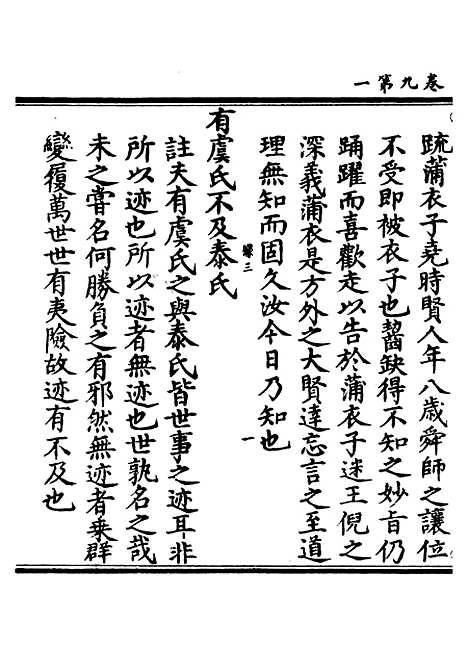 卷九第一
疏蒲衣子堯時賢人年八歲舜師之讓位
不受即被衣子也齧缺得不知之妙旨仍
踊躍而喜歡走以告於蒲衣子迷王倪之
深義蒲衣是方外之大賢達忘言之至道
理無知而固久汝今日乃知也
有虞氏不及泰氏
註夫有虞氏之與泰氏皆世事之迹耳非
所以迹也所以迹者無迹也世孰名之哉
未之嘗名何勝負之有邪然無迹者乗群
變履萬世世有夷險故迹有不及也